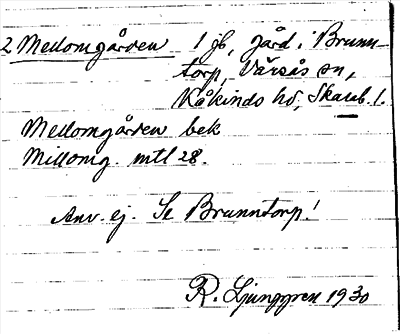 2 Mellomgården 1 jb, gård i Brunn-
torp, Värsås sn,
Kåkinds hd, Skarab. l.
Mellomgården bek
Millomg. mtl 28.
Anv. ej. Se Brunntorp!
R. Ljunggren 1930